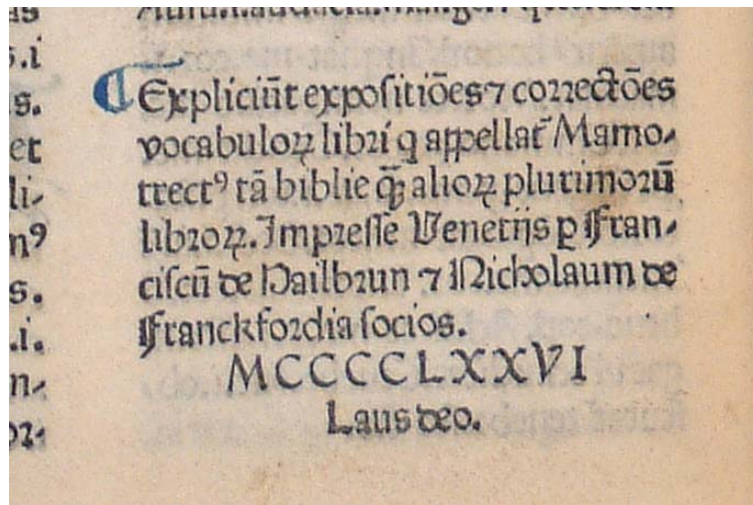 ¶ Expliciūt expositiōes ⁊ correctōes
vocabuloꝝ libri q̇ appellat᷑ Mamo-
trectꝰ tā biblie q̄ꝫ alioꝝ plurimorū
libroꝝ. Impresse Venetijs ꝑ Fran-
ciscū de Hailbrun ⁊ Nicholaum de
Franckfordia socios.
MCCCCLXXVI
Laus deo.